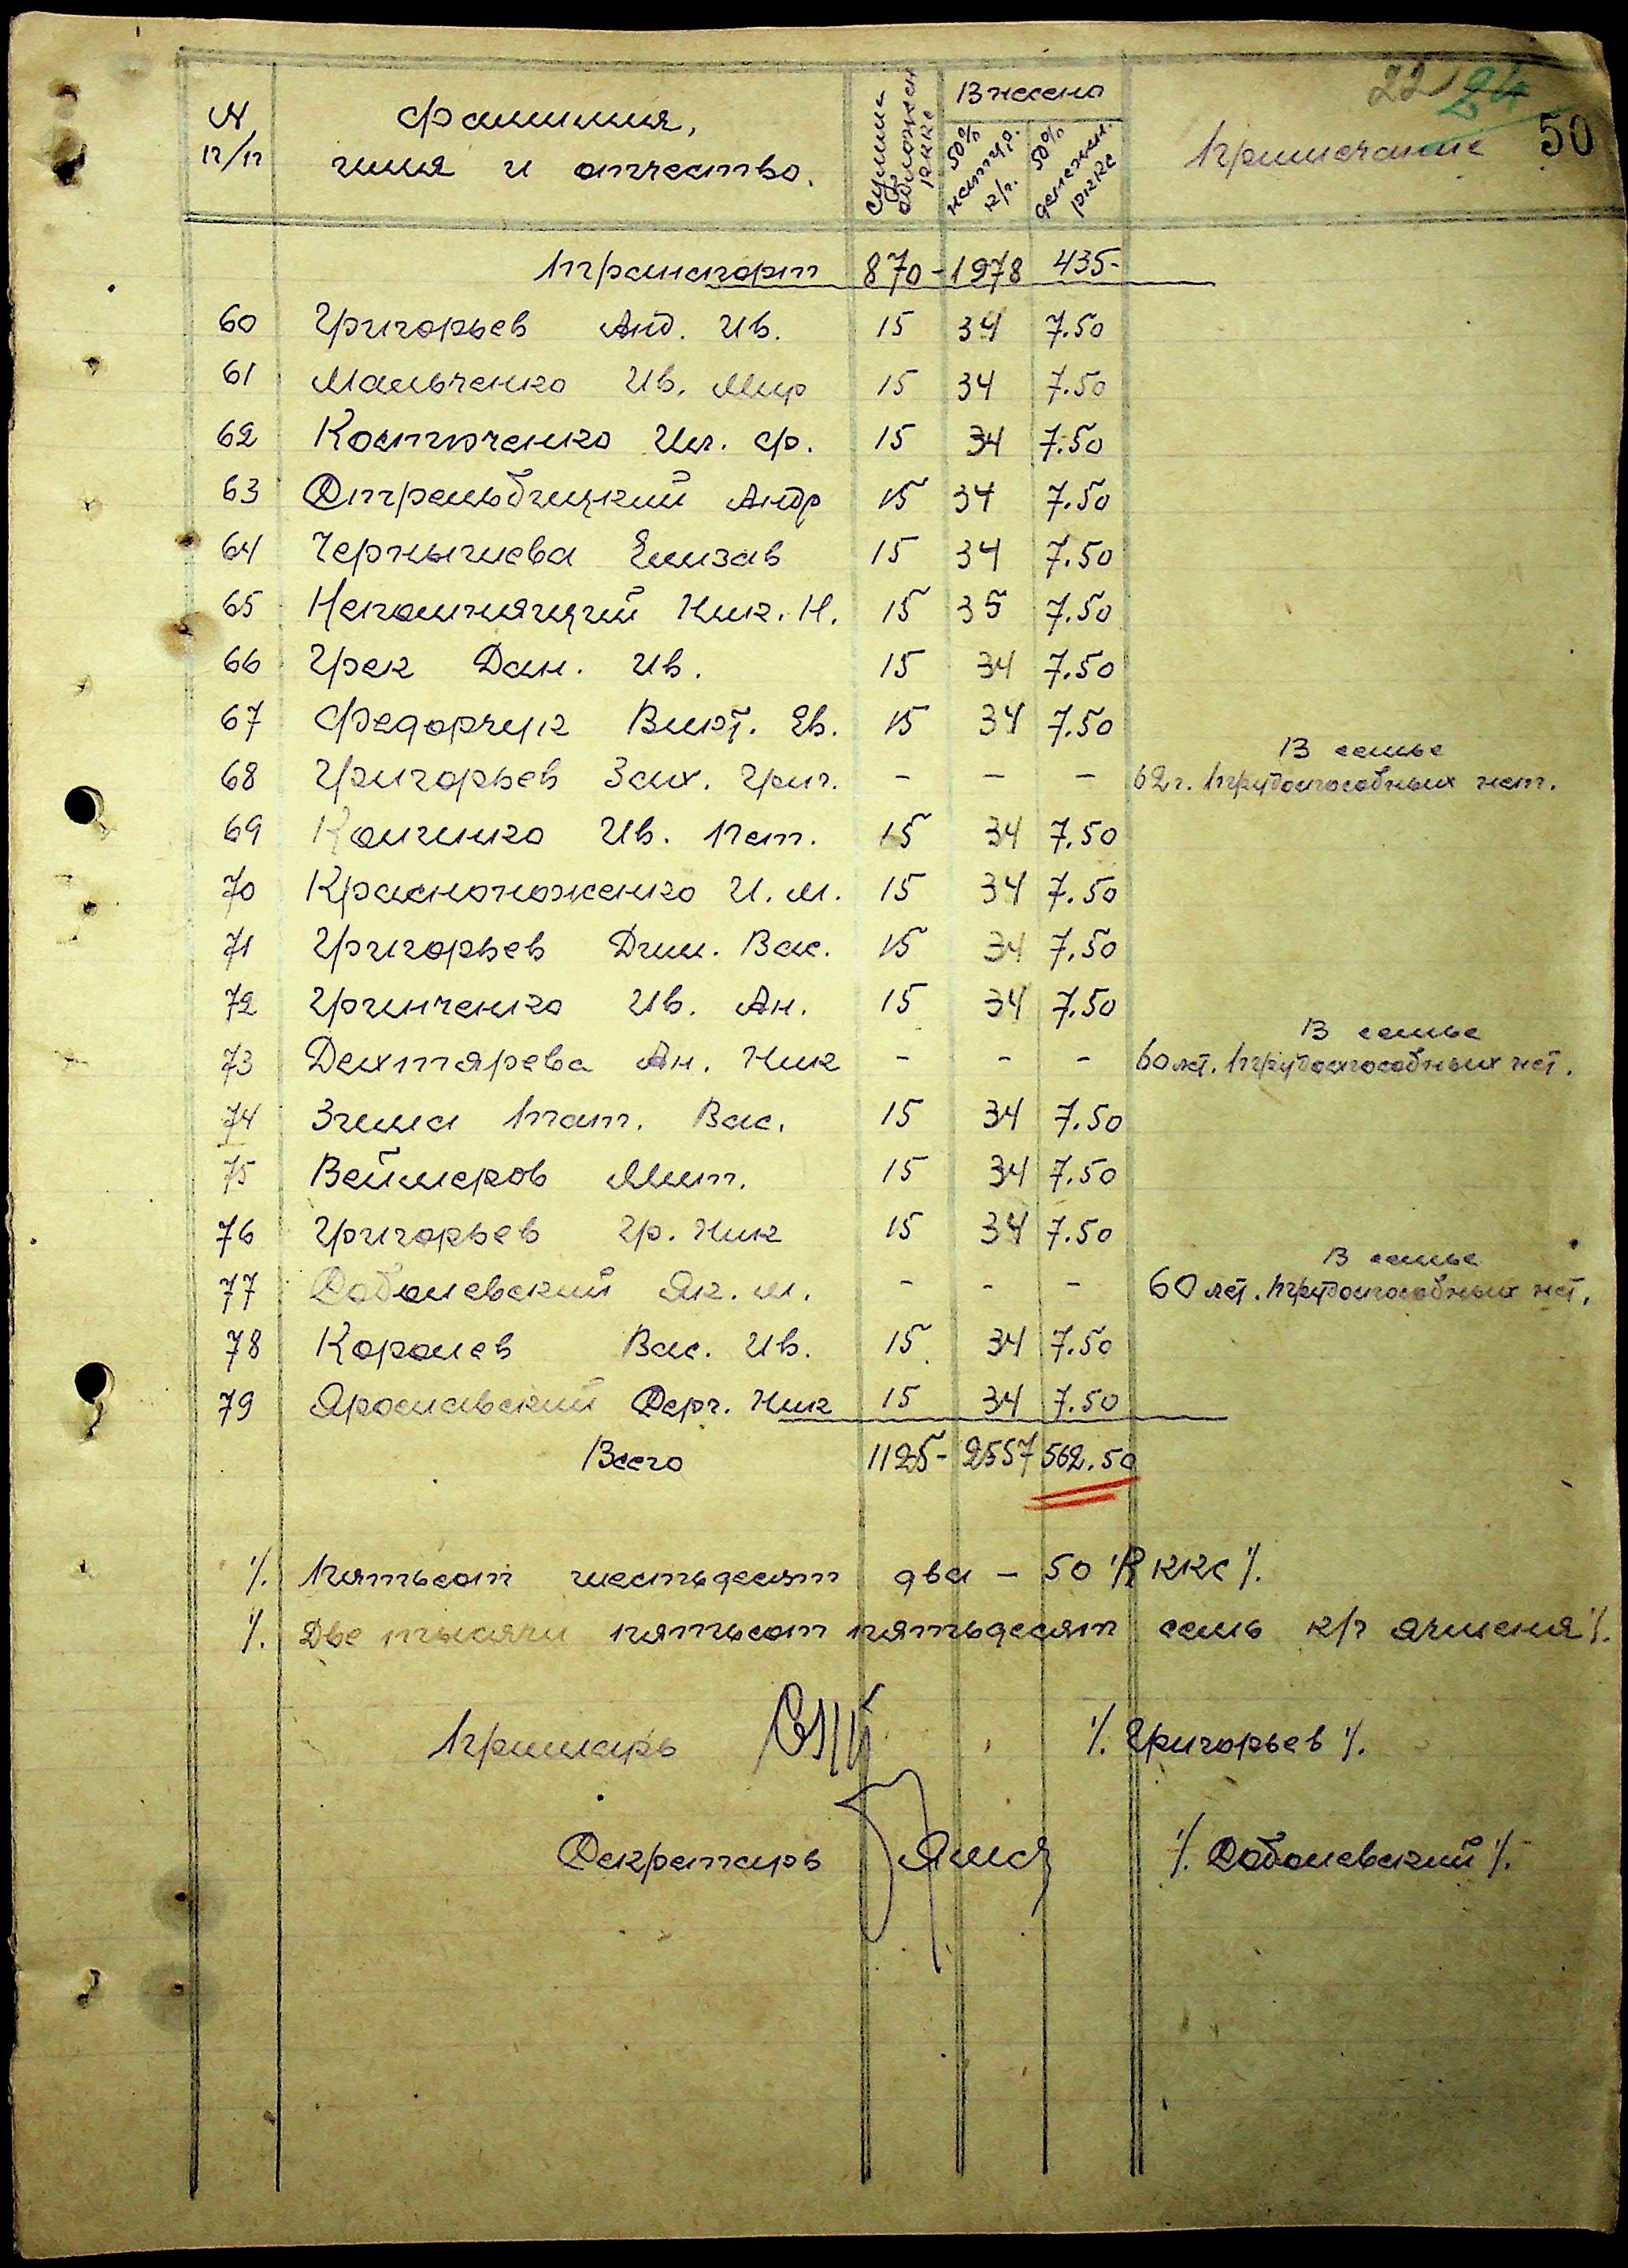 22 24
50
N п/п Фамилия, имя и отчество. Сумма обложен RKKS Внесено 50% натур. к/г. 50% денежн. RKKS Примечание
Транспорт 870- 1978 435-
60 Григорьев Анд. Ив. 15 34 7.50
61 Мальченко Ив. Мир 15 34 7.50
62 Костюченко Ил. Ф. 15 34 7.50
63 Стрельбицкий Андр 15 34 7.50
64 Чернышева Елизав 15 34 7.50
65 Непомнящий Ник. Н. 15 35 7.50
66 Грек Дан. Ив. 15 34 7.50
67 Федорчук Викт. Ев. 15 34 7.50
В семье
68 Григорьев Зах. Григ. - - - 62 г. трудоспособных нет.
69 Ив. Пет. 15 34 7.50
70 Красноноженко И. М. 15 34 7.50
71 Григорьев Дим. Вас. 15 34 7.50
72 Гринченко Ив. Ан. 15 34 7.50
В семье
73 Дехтярева Ан. Ник - - - 60 лет. трудоспособных нет.
74 Зима Тат. Вас. 15 34 7.50
75 Веймеров Мит. 15 34 7.50
76 Григорьев Гр. Ник 15 34 7.50
В семье
77 Соболевский Як. М. - - - 60 лет. трудоспособных нет.
78 Королев Вас. Ив. 15 34 7.50
79 Ярославский Серг. Ник 15 34 7.50
Всего 1125- 2557 562.50
/. Пятьсот шестьдесят два - 50 RKKS /.
/. Две тысячи пятьсот пятьдесят семь к/г ячменя /.
Примарь /. Григорьев /.
Секретарь /. Соболевский /.